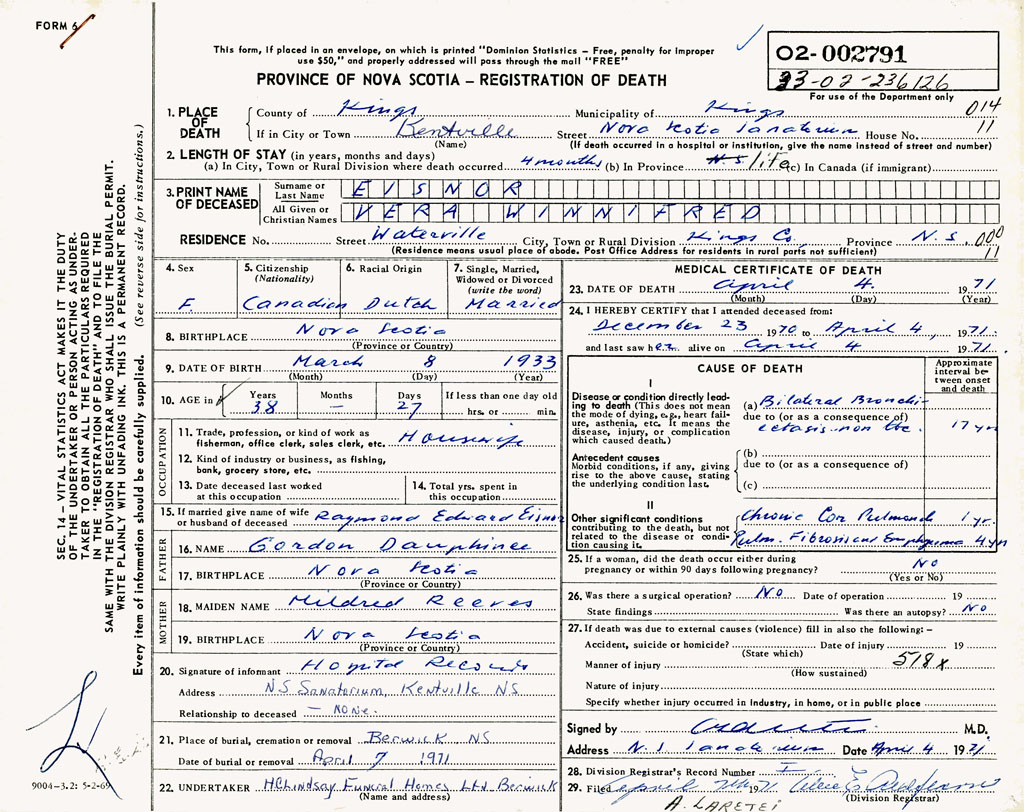 FORM 6
This form, if placed in an envelope, on which is printed "Dominion Statistics – Free, penalty for improper
use $50," and properly addressed will pass through the mail "FREE"
PROVINCE OF NOVA SCOTIA – REGISTRATION OF DEATH
02-002791
33-02-236126
For use of the Department only
014
11
1. PLACE OF DEATH
County of Kings Municipality of Kings
If in City or Town Kentville Street Nova Scotia Sanatorium House No.
(Name) (If death occurred in a hospital or institution, give the name instead of street and number)
2. LENGTH OF STAY (in years, months and days)
(a) In City, Town or Rural Division where death occurred 4 months (b) In Province life (c) In Canada (if immigrant)
3. PRINT NAME OF DECEASED
Surname or Last Name EISNOR
All Given or Christian Names VERA WINNIFRED
RESIDENCE No. Street Waterville City, Town or Rural Division Kings Co. Province N.S. 000
(Residence means usual place of abode. Post Office Address for residents in rural parts not sufficient) 11
4. Sex F.
5. Citizenship (Nationality) Canadian
6. Racial Origin Dutch
7. Single, Married, Widowed or Divorced (write the word) Married
8. BIRTHPLACE Nova Scotia
(Province or Country)
9. DATE OF BIRTH March 8 1933
(Month) (Day) (Year)
10. AGE in Years 38 Months — Days 27 If less than one day old hrs. or min.
OCCUPATION
11. Trade, profession, or kind of work as fisherman, office clerk, sales clerk, etc. Housewife
12. Kind of industry or business, as fishing, bank, grocery store, etc.
13. Date deceased last worked at this occupation
14. Total yrs. spent in this occupation
15. If married give name of wife or husband of deceased Raymond Edward Eisnor
FATHER
16. NAME Gordon Dauphinee
17. BIRTHPLACE Nova Scotia
(Province or Country)
MOTHER
18. MAIDEN NAME Mildred Reeves
19. BIRTHPLACE Nova Scotia
(Province or Country)
20. Signature of informant Hospital Records
Address NS Sanatorium, Kentville NS
Relationship to deceased – NONE.
21. Place of burial, cremation or removal Berwick NS
Date of burial or removal April 7 1971
22. UNDERTAKER H C Lindsay Funeral Homes Ltd Berwick
(Name and address)
MEDICAL CERTIFICATE OF DEATH
23. DATE OF DEATH April 4. 1971
(Month) (Day) (Year)
24. I HEREBY CERTIFY that I attended deceased from:
December 23 1970 to April 4, 1971.
and last saw her alive on April 4 1971.
CAUSE OF DEATH
Approximate interval between onset and death
I
Disease or condition directly leading to death (This does not mean the mode of dying, e.g., heart failure, asthenia, etc. It means the disease, injury, or complication which caused death.)
(a) Bilateral Bronchi-
due to (or as a consequence of)
ectasis non tbc. 17 yrs
Antecedent causes
Morbid conditions, if any, giving rise to the above cause, stating the underlying condition last.
(b)
due to (or as a consequence of)
(c)
II
Other significant conditions contributing to the death, but not related to the disease or condition causing it.
Chronic Cor Pulmonale 1 yr.
Pulm. Fibrosis and Emphysema 4 yrs
25. If a woman, did the death occur either during pregnancy or within 90 days following pregnancy? No
(Yes or No)
26. Was there a surgical operation? No Date of operation 19
State findings Was there an autopsy? No
27. If death was due to external causes (violence) fill in also the following: –
Accident, suicide or homicide? Date of injury 19
(State which) 518x
Manner of injury
(How sustained)
Nature of injury
Specify whether injury occurred in industry, in home, or in public place
Signed by M.D.
Address N.S. Sanatorium Date April 4 1971
28. Division Registrar's Record Number
29. Filed April 7th 1971
Division Registrar
A. LARETEI
SEC. 14 – VITAL STATISTICS ACT MAKES IT THE DUTY
OF THE UNDERTAKER OR PERSON ACTING AS UNDER-
TAKER TO OBTAIN ALL THE PARTICULARS REQUIRED
IN THE "REGISTRATION OF DEATH" AND TO FILE THE
SAME WITH THE DIVISION REGISTRAR WHO SHALL ISSUE THE BURIAL PERMIT.
WRITE PLAINLY WITH UNFADING INK. THIS IS A PERMANENT RECORD.
Every item of information should be carefully supplied. (See reverse side for instructions.)
9004-3.2: 5-2-69